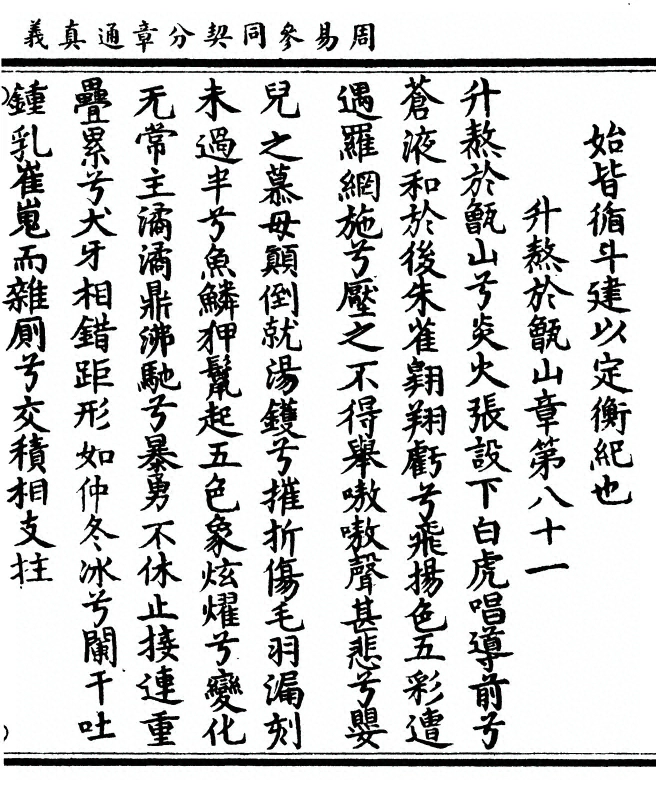 周易參同契分章通真義
始皆循斗建以定衡紀也
升熬於甑山章第八十一
升熬於甑山兮炎火張設下白虎唱導前兮
蒼液和於後朱雀翺翔戲兮飛揚色五彩遭
遇羅網施兮壓之不得舉嗷嗷聲甚悲兮嬰
兒之慕母顛倒就湯鑊兮摧折傷毛羽漏刻
未過半兮魚鱗狎鬣起五色象炫燿兮變化
无常主潏潏鼎沸馳兮暴勇不休止接連重
疊累兮犬牙相錯距形如仲冬冰兮闌干吐
鍾乳崔嵬而雜厠兮交積相支拄